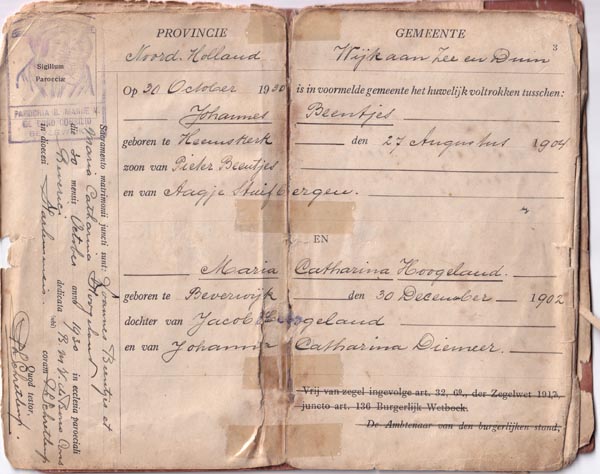 PROVINCIE
GEMEENTE
3
Noord-Holland
Wijk aan Zee en Duin
Op 30 October 1930 is in voormelde gemeente het huwelijk voltrokken tusschen:
Johannes Beentjes
geboren te Heemskerk den 27 Augustus 1904
zoon van Pieter Beentjes
en van Aagje Stuifbergen.
EN
Maria Catharina Hoogeland.
geboren te Beverwijk den 30 December 1902
dochter van Jacob Hoogeland
en van Johanna Catharina Diemeer.
Vrij van zegel ingevolge art. 32, 6º., der Zegelwet 1917,
juncto art. 136 Burgerlijk Wetboek.
De Ambtenaar van den burgerlijken stand,
Sigillum
Paroeciæ
PAROCHIA B. MARIAE V.
Sacramento matrimonii juncti sunt: Joannes Beentjes et
Maria Catharina Hoogeland
die 30 mensis October anno 1930 in ecclesia paroeciali
dedicata B. M. V.
in dioecesi Harlemensis coram
Quod testor,